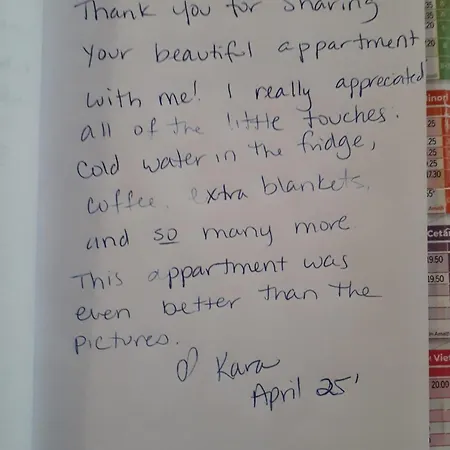 Thank you for sharing
your beautiful appartment
with me! I really apprecated
all of the little touches:
Cold water in the fridge,
coffee, extra blankets,
and so many more.
This appartment was
even better than the
pictures.
Kara
April 25'
35
35
20
20
.25
.25
.25
.25
17.30
Cetăț
19.50
19.50
Viet
20.00